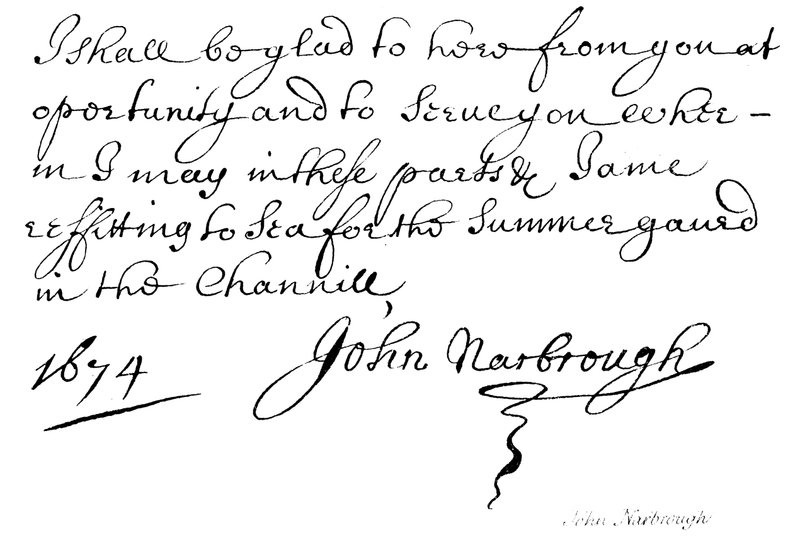 I shall be glad to here from you at
oportunity and to serve you where –
in I may in these parts & I ame
reffitting to Sea for the Summer gaurd
in the Channill,
1674 John Narbrough
John Narbrough